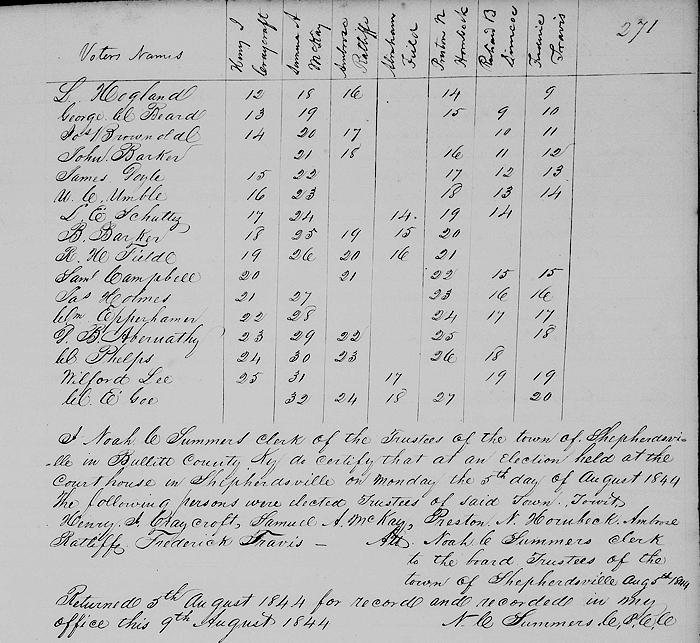 271
Voters Names Henry I Craycroft Samuel A McKay Ambrose Ratliffe Abraham Field Preston N Hornbeck Richard B Simcoe Frederic Travis
L. Hogland 12 18 16 14 9
George W Beard 13 19 15 9 10
Jos Brownold 14 20 17 10 11
John Barker 21 18 16 11 12
James Goyle 15 22 17 12 13
W. C. Umble 16 23 18 13 14
L. E Schultz 17 24 14 19 14
B. Barker 18 25 19 15 20
R. H Field 19 26 20 16 21
Saml Campbell 20 21 22 15 15
Jas Holmes 21 27 23 16 16
Wm Epperhamer 22 28 24 17 17
P. B Abernathy 23 29 22 25 18
W Phelps 24 30 23 26 18
Wilford Lee 25 31 17 19 19
W. E Goe 32 24 18 27 20
I Noah C Summers clerk of the Trustees of the town of Shepherdsvi-
-lle in Bullitt County Ky do certify that at an election held at the
Court house in Shepherdsville on Monday the 5th day of August 1844
The following persons were elected Trustees of said Town. Towit,
Henry I. Craycroft, Samuel A. McKay, Preston. N. Hornbeck Ambrose
Ratliffe Frederick Travis – Att. Noah C Summers clerk
to the board Trustees of the
town of Shepherdsville Aug 5th 1844
Returned 5th August 1844 for record and recorded in my
office this 9th August 1844 N. C Summers C, B, C, C